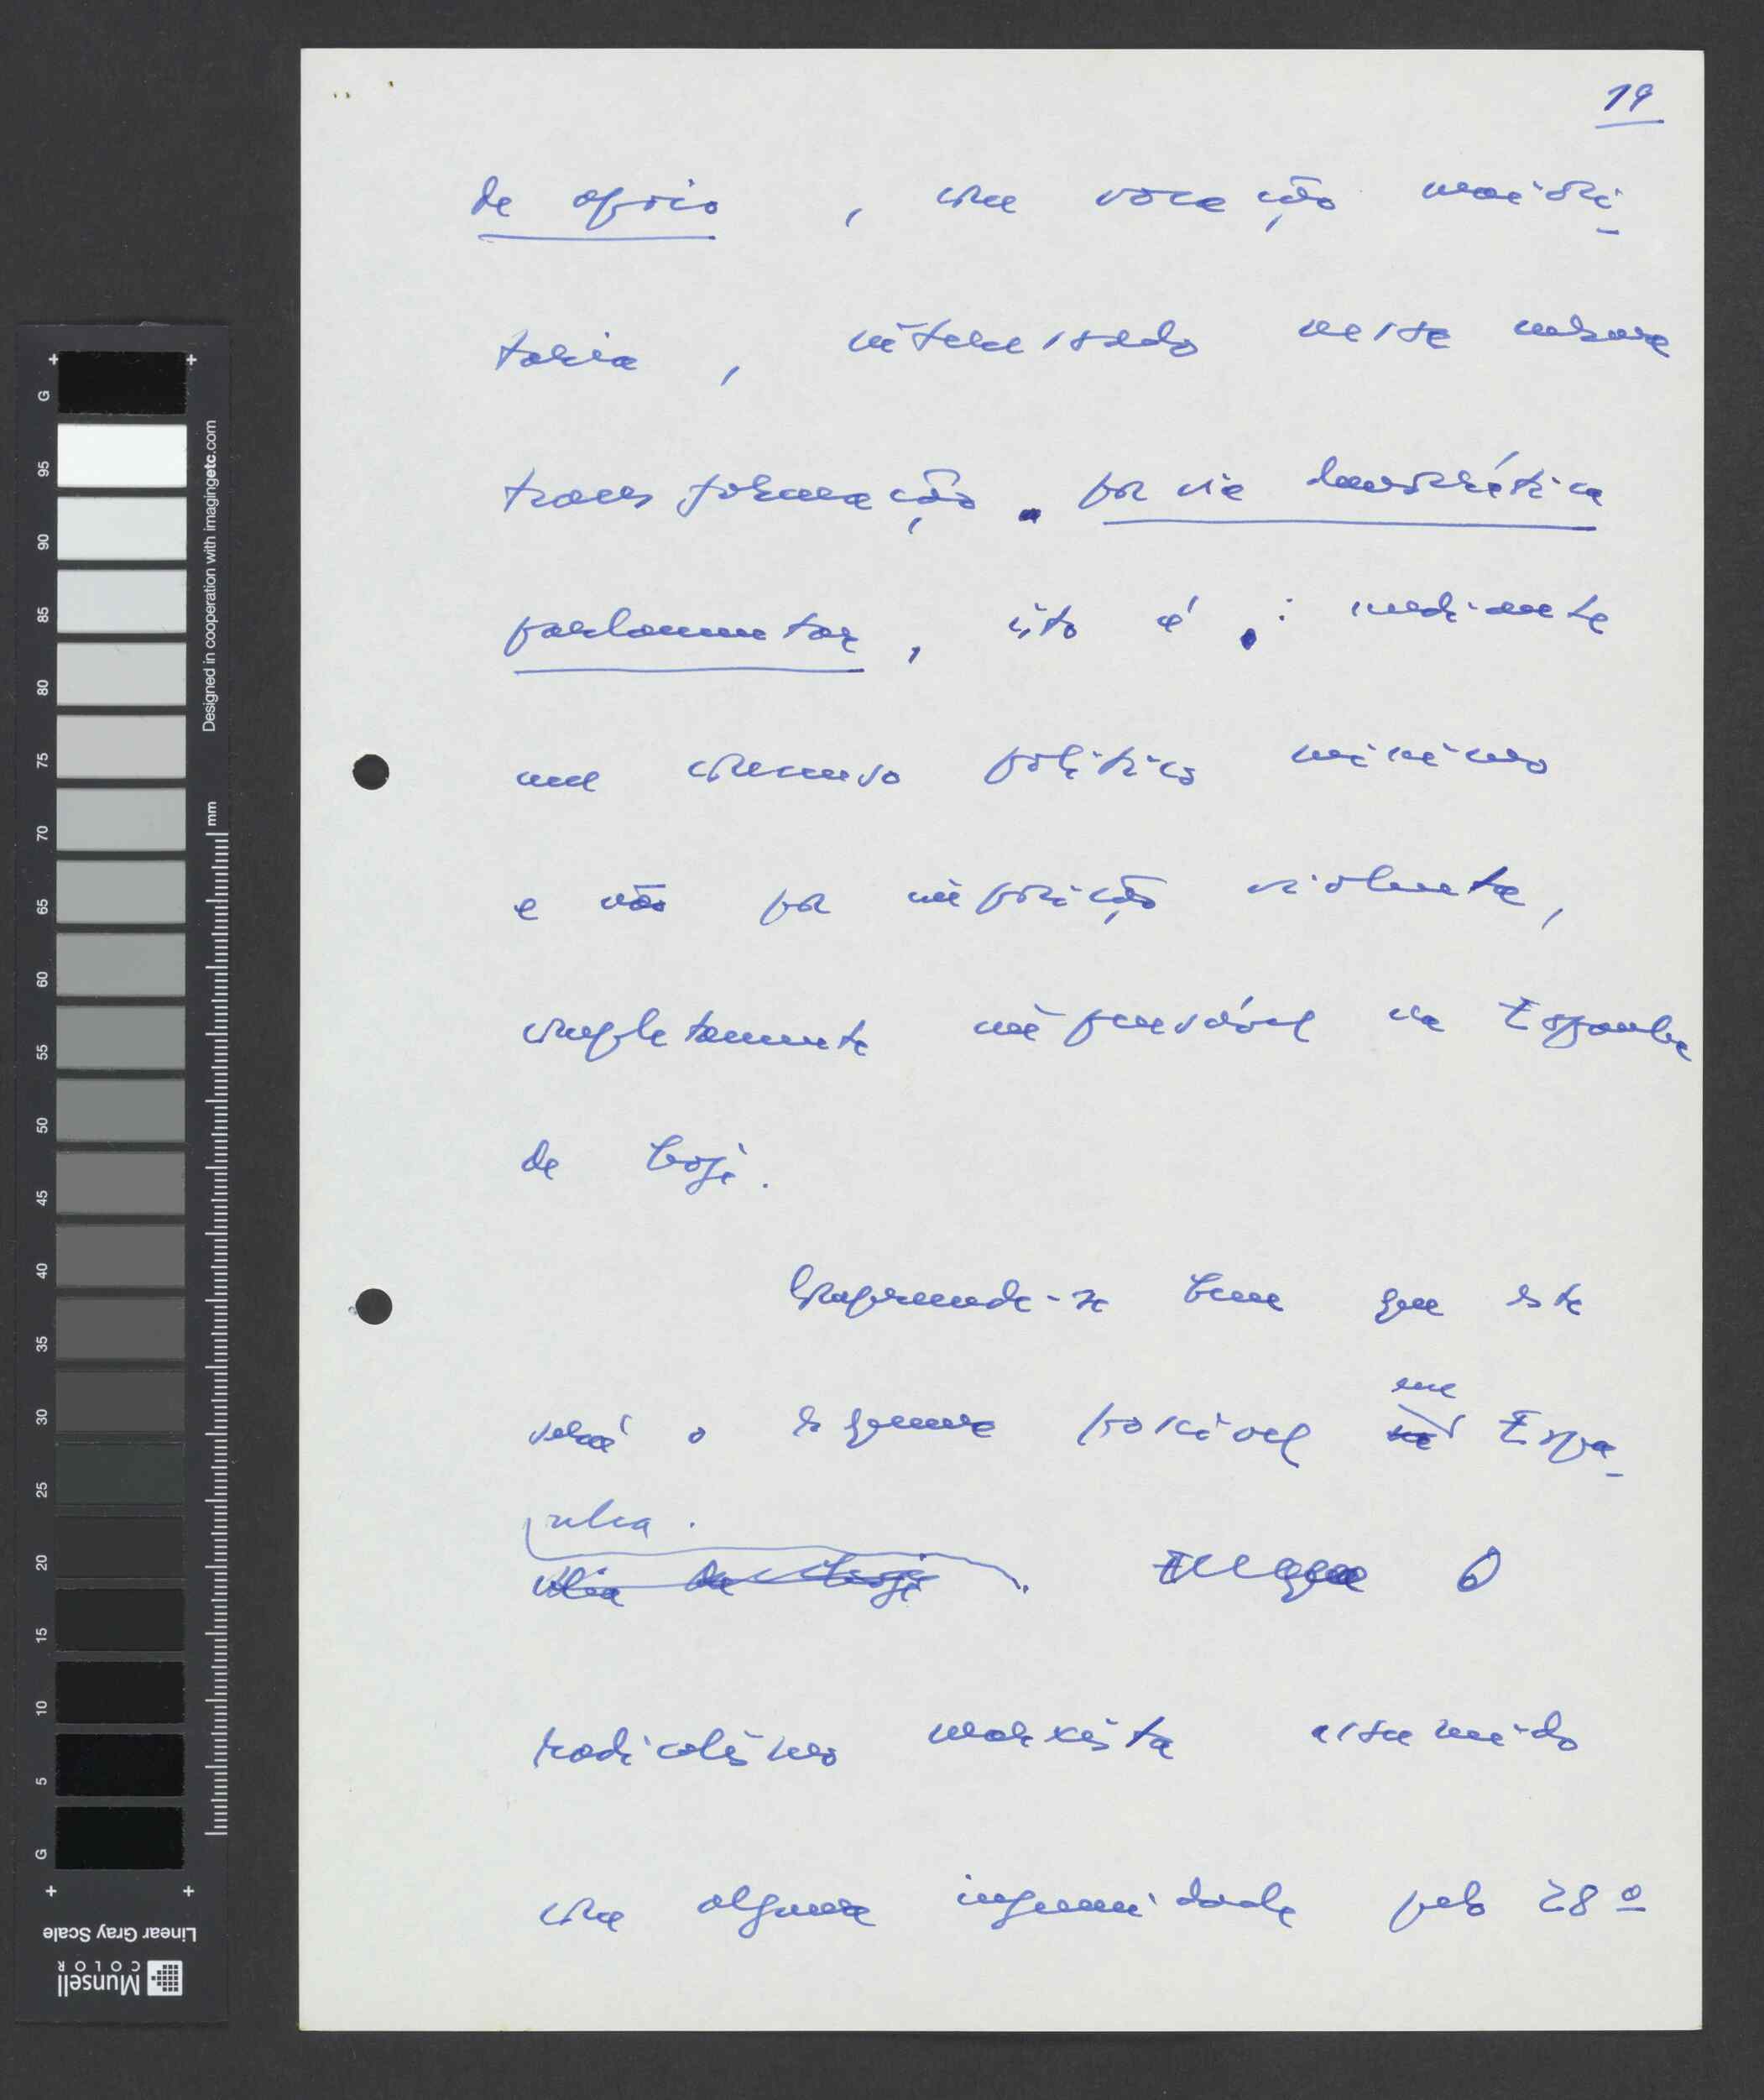 19
de apoio, com vocação maiori-
tária, interessado nessa mesma
transformação por via democrática
parlamentar, isto é: mediante
um consenso político mínimo
e não por imposição violenta,
completamente impensável na Espanha
de hoje.
Compreende-se bem que este
será o esquema possível em Espa-
nha.
O
radicalismo marxista assumido
com alguma ingenuidade pelo 28º
G 95 90 85 80 75 70 65 60 55 50 45 40 35 30 25 20 15 10 5 G
Designed in cooperation with imagingetc.com
mm
Linear Gray Scale
Munsell
COLOR